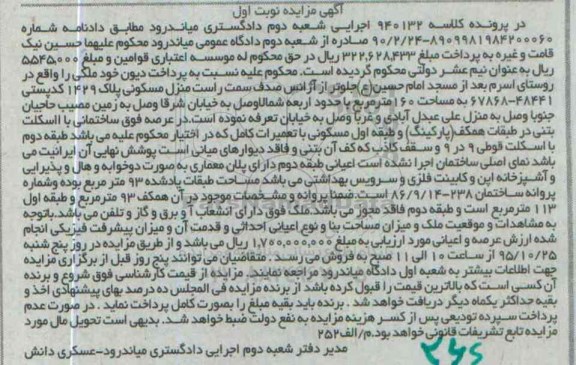 آگهی مزایده نوبت اول
در پرونده کلاسه ۹۴۰۱۳۲ اجرایی شعبه دوم دادگستری میاندرود مطابق دادنامه شماره
۹۰/۲/۲۴-۸۹۰۹۹۸۱۹۸۴۲۰۰۰۶۰ صادره از شعبه دوم دادگاه عمومی میاندرود محکوم علیهما حسین نیک
قامت و غیره به پرداخت مبلغ ۳۲۲,۶۲۸,۴۳۳ ریال در حق محکوم له موسسه اعتباری قوامین و مبلغ ۵۵۴۵,۰۰۰
ریال به عنوان نیم عشر دولتی محکوم گردیده است. محکوم علیه نسبت به پرداخت دیون خود ملکی را واقع در
روستای اسرم بعد از مسجد امام حسین(ع) جلوتر از آژانس صدف سمت راست منزل مسکونی پلاک ۱۴۲۹ کدپستی
۴۸۴۴۱-۶۷۸۶۸ به مساحت ۱۶۰ مترمربع با حدود اربعه شمالا وصل به خیابان شرقا وصل به زمین مصیب حاجیان
جنوبا وصل به منزل علی عبدل آبادی و غربا وصل به خیابان تعرفه نموده است. در عرصه فوق ساختمانی با اسکلت
بتنی در طبقات همکف (پارکینگ) و طبقه اول مسکونی با تعمیرات کامل که در اختیار محکوم علیه می باشد طبقه دوم
با اسکلت قوطی ۹ در ۹ و سقف کاذب که کف آن بتنی و فاقد دیوارهای میانی است پوشش نهایی آن ایرانیت می
باشد نمای اصلی ساختمان اجرا نشده است اعیانی طبقه دوم دارای پلان معماری به صورت دوخوابه و هال و پذیرایی
و آشپزخانه اپن و کابینت فلزی و سرویس بهداشتی می باشد مساحت طبقات یادشده ۹۳ متر مربع بوده وشماره
پروانه ساختمان ۲۳۸-۸۶/۹/۱۴ است. ضمنا پروانه و مشخصات موجود در آن همکف ۹۳ مترمربع و طبقه اول
۱۱۳ مترمربع است و طبقه دوم فاقد مجوز می باشد. ملک فوق دارای انشعاب آ و برق و گاز و تلفن می باشد. باتوجه
به مشاهدات و موقعیت ملک و میزان مساحت بنا و نوع اعیانی احداثی و قدمت آن و میزان پیشرفت فیزیکی انجام
شده ارزش عرصه و اعیانی مورد ارزیابی به مبلغ ۱,۷۰۰,۰۰۰,۰۰۰ ریال می باشد و از طریق مزایده در روز پنج شنبه
۹۵/۱۰/۲۵ از ساعت ۱۰ الی ۱۱ صبح به فروش می رسد. متقاضیان می توانند پنج روز قبل از برگزاری مزایده
جهت اطلاعات بیشتر به شعبه اول دادگاه میاندرود مراجعه نمایند. مزایده از قیمت کارشناسی فوق شروع و برنده
آن کسی است که بالاترین قیمت را قبول کرده باشد از برنده مزایده فی المجلس ده درصد بهای پیشنهادی اخذ و
بقیه حداکثر یکماه دیگر دریافت خواهد شد. برنده باید بقیه مبلغ را بصورت کامل پرداخت نماید. در صورت عدم
پرداخت سپرده تودیعی پس از کسر هزینه مزایده به نفع دولت ضبط خواهد شد. بدیهی است تحویل مال مورد
مزایده تابع تشریفات قانونی خواهد بود. م/الف۲۵۲
مدیر دفتر شعبه دوم اجرایی دادگستری میاندرود-عسکری دانش